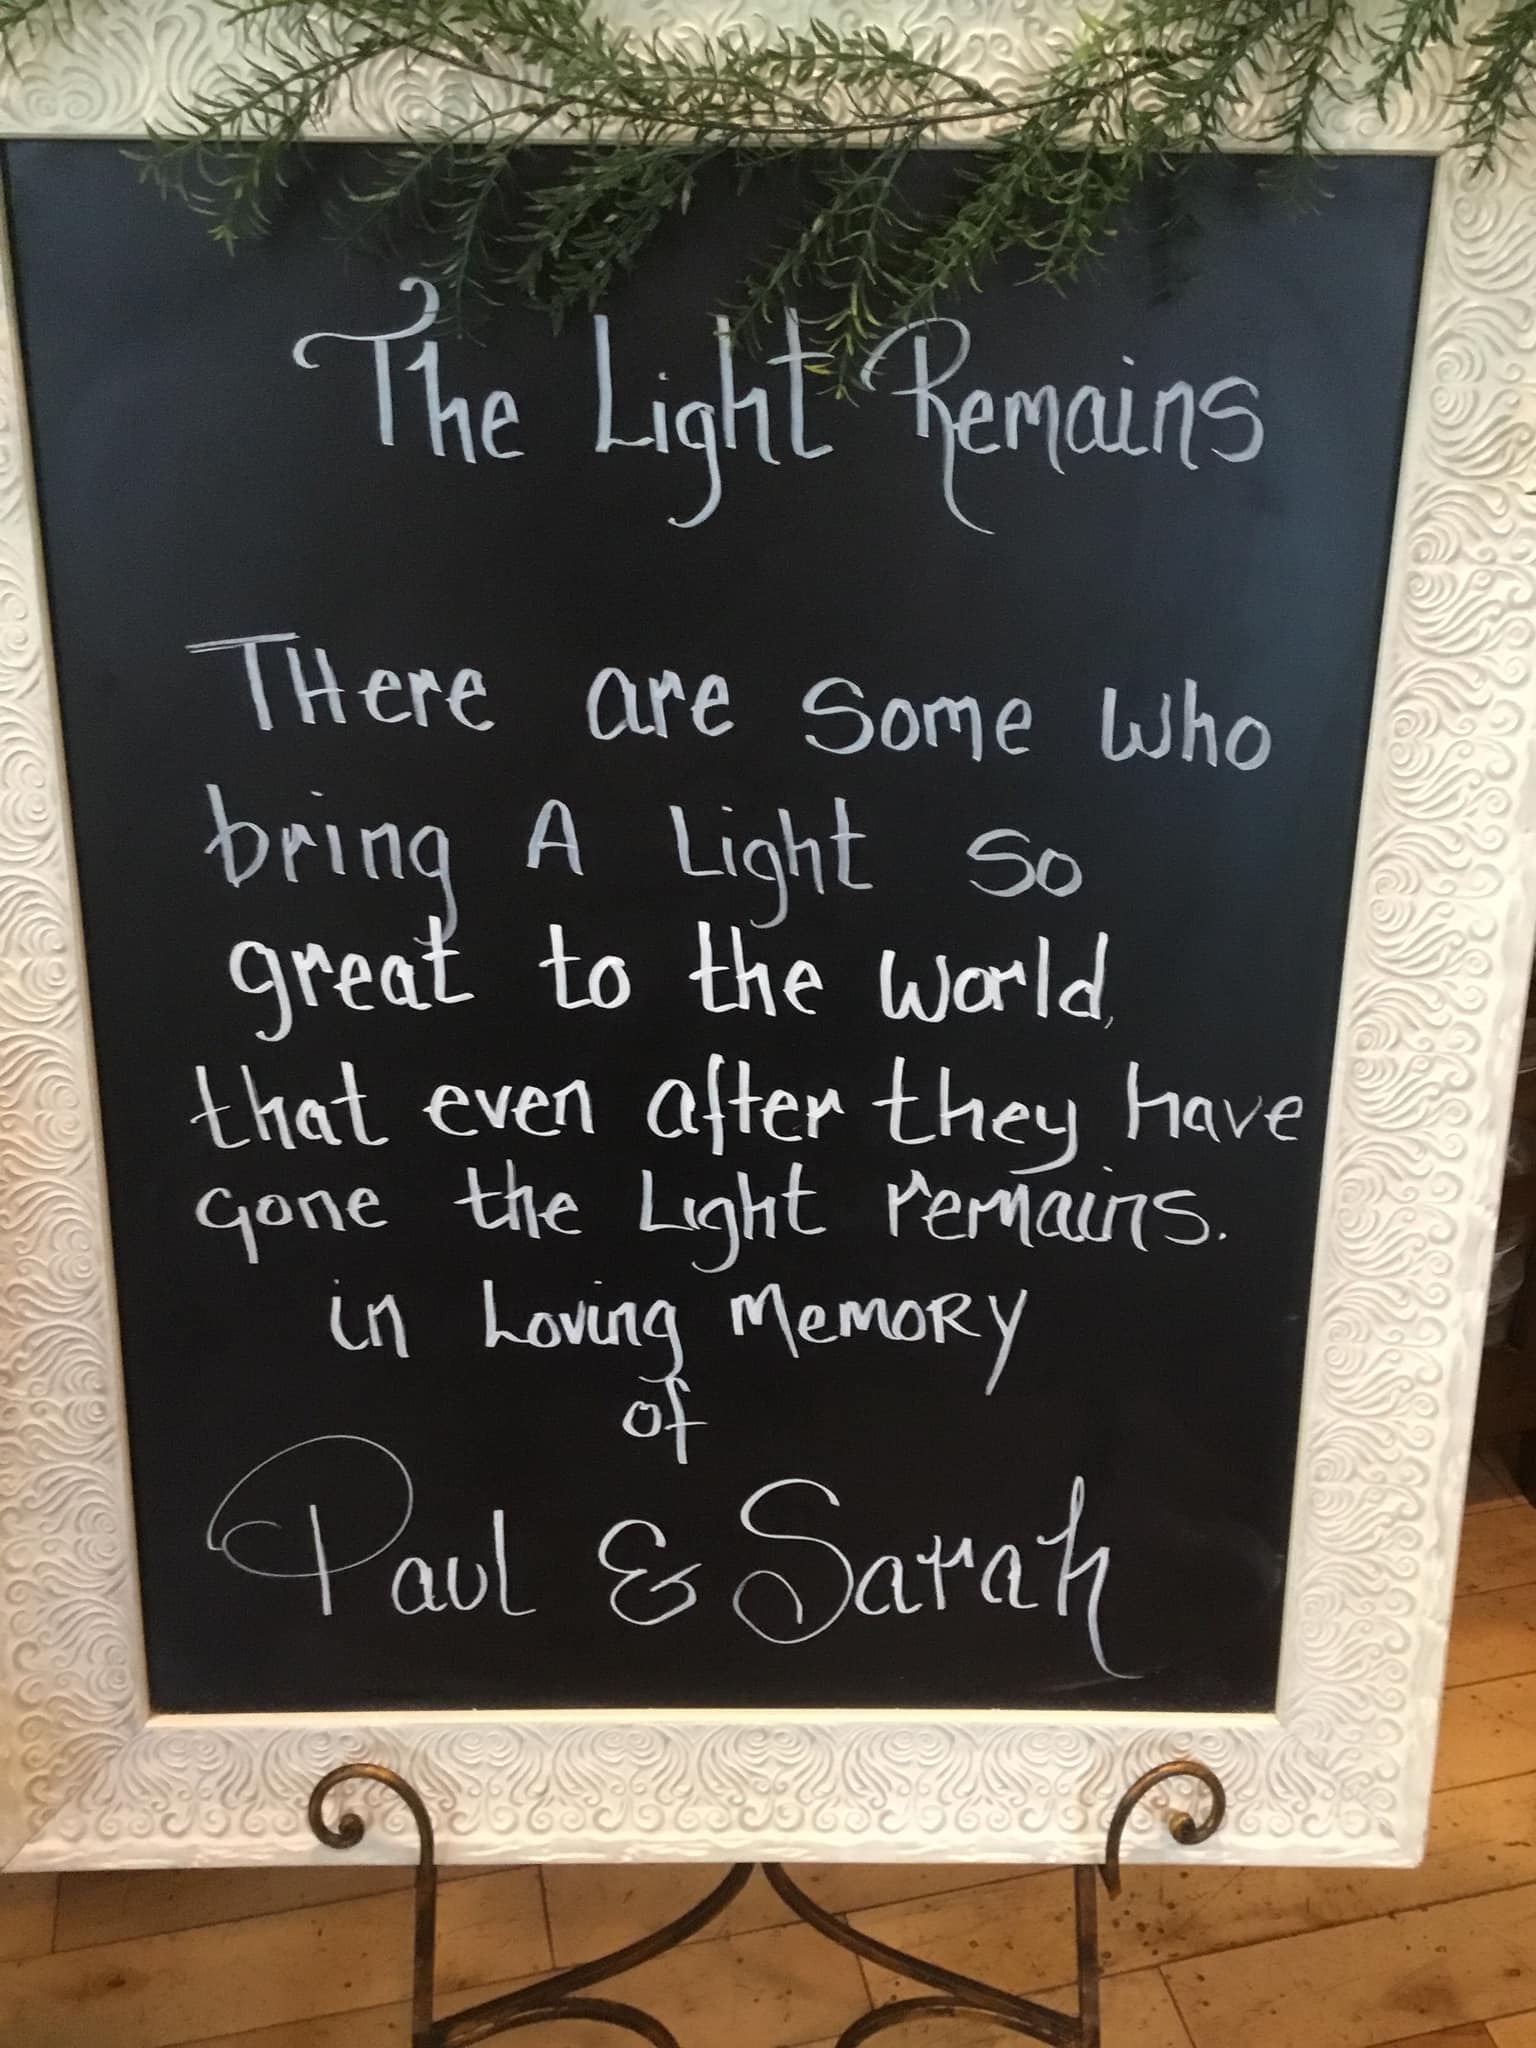 The Light Remains
THere are some who
bring A Light so
great to the world,
that even after they have
gone the Light remains.
in Loving MeMORY
of
Paul & Sarah